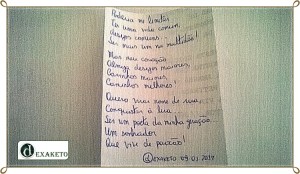 Poderia me limitar
Ter uma vida comum,
desejos comuns...
Ser mais um na multidão!
Mas meu coração
Almeja desejos maiores,
Caminhos maiores,
Caminhos melhores!
Quero mais nome de rua,
Conquistar a lua...
Ser um poeta da minha geração...
Um sonhador
Que vive de paixão!
EXAKETO 09.01.2019
d
EXAKETO